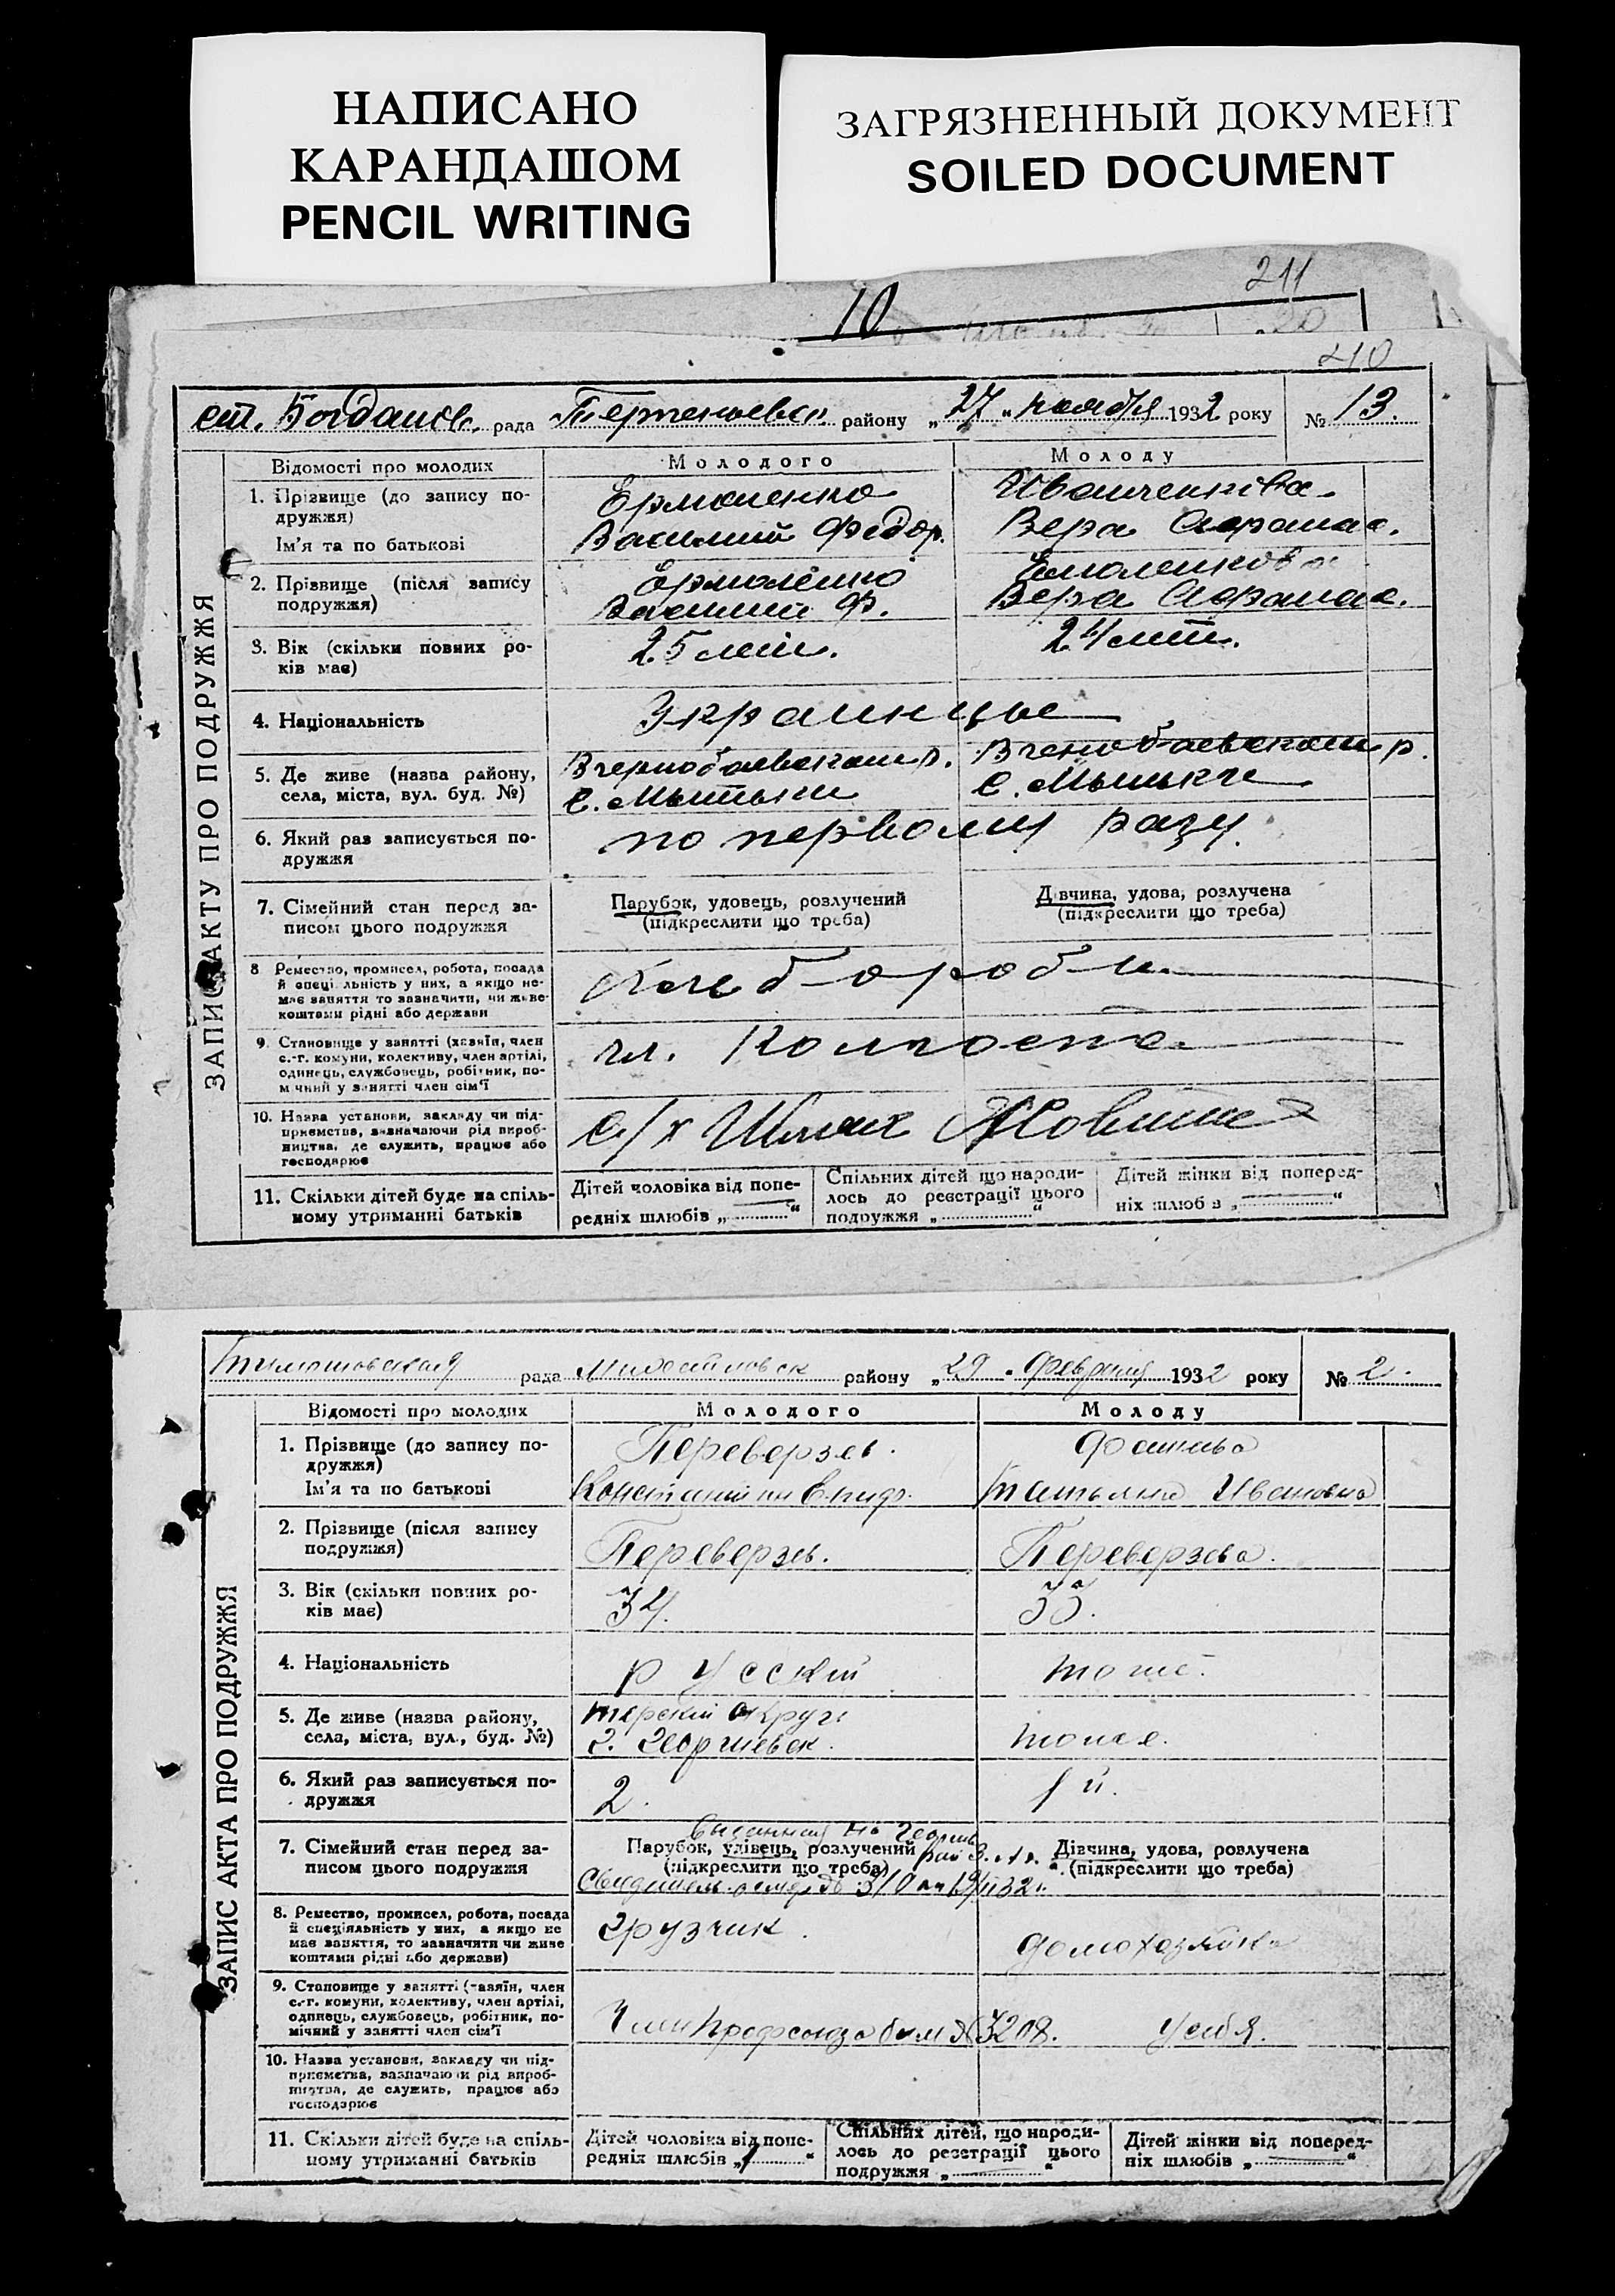 НАПИСАНО
КАРАНДАШОМ
PENCIL WRITING
ЗАГРЯЗНЕННЫЙ ДОКУМЕНТ
SOILED DOCUMENT
211
10
20
210
ст. Богданов. рада района „27„ ноября 1932 року № 13.
ЗАПИС АКТУ ПРО ПОДРУЖЖЯ
Відомості про молодих
Молодого
Молоду
1. Прізвище (до запису по-
дружжя)
Ім'я та по батькові
Ермоленко
Василий Федор.
Вера Афанас.
2. Прізвище (після запису
подружжя)
Ермоленко
Василий Ф.
Вера Афанас.
3. Вік (скільки повних ро-
ків має)
25 лет.
24 лет.
4. Національність
Украинцы
5. Де живе (назва району,
села, міста, вул. буд. №)
В чернобаевском р.
с. Мытьки
В чернобаевском р.
с. Мытьки
6. Який раз записується по-
дружжя
по первому разу.
7. Сімейний стан перед за-
писом цього подружжя
Парубок, удовець, розлучений
(підкреслити що треба)
Дівчина, удова, розлучена
(підкреслити що треба)
8 Ремество, промисел, робота, посада
й спеціяльність у них, а якщо не-
має заняття то зазначити, чи живе
коштами рідні або держави
Хлебороб
9. Становище у занятті (хазяїн, член
с.-г. комуни, колективу, член артілі,
одинець, службовець, робітник, по-
мічний у занятті член сім'ї
чл. Колхоста
10. Назва установи, закладу чи під-
приємства, зазначаючи рід вироб-
ництва, де служить, працює або
господарює
с/х Шлях Жовтня
11. Скільки дітей буде на спіль-
ному утриманні батьків
Дітей чоловіка від попе-
редніх шлюбів „......“
Спільних дітей що народи-
лось до реєстрації цього
подружжя „......“
Дітей жінки від поперед-
ніх шлюбів „......“
Тимошовская рада району „29„ февраля 1932 року № 2.
ЗАПИС АКТА ПРО ПОДРУЖЖЯ
Відомості про молодих
Молодого
Молоду
1. Прізвище (до запису по-
дружжя)
Ім'я та по батькові
Переверзев.
Константин Епиф.
Татьяна Ивановна
2. Прізвище (після запису
подружжя)
Переверзев.
Переверзева.
3. Вік (скільки повних ро-
ків має)
34.
33.
4. Національність
русский
тоже.
5. Де живе (назва району,
села, міста, вул., буд. №)
терский округ
г. Георгиевск.
тоже.
6. Який раз записується по-
дружжя
2.
1й.
7. Сімейний стан перед за-
писом цього подружжя
Парубок, удівець, розлучений
(підкреслити що треба)
Дівчина, удова, розлучена
(підкреслити що треба)
8. Ремество, промисел, робота, посада
й спеціяльність у них, а якщо не
має заняття, то зазначити чи живе
коштами рідні або держави)
грузчик.
домохозяйка
9. Становище у занятті (хазяїн, член
с.-г. комуни, колективу, член артілі,
одинець, службовець, робітник, по-
мічний у занятті член сім'ї
Член профсоюза билет № 3208.
у себя.
10. Назва установи, закладу чи під-
приємства, зазначаючи рід вироб-
ництва, де служить, працює або
господарює
11. Скільки дітей буде на спіль-
ному утриманні батьків
Дітей чоловіка від попе-
редніх шлюбів „1......“
Спільних дітей, що народи-
лось до реєстрації цього
подружжя „......“
Дітей жінки від поперед-
ніх шлюбів „......“